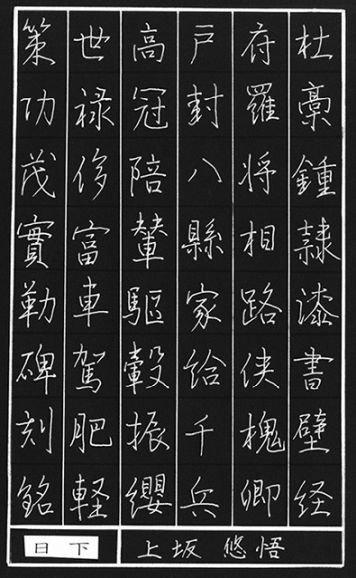 杜稾鍾隷漆書壁経
府羅将相路侠槐卿
戸封八縣家給千兵
高冠陪輦驅轂振纓
世禄侈富車駕肥軽
策功茂實勒碑刻銘
日下
上坂悠悟